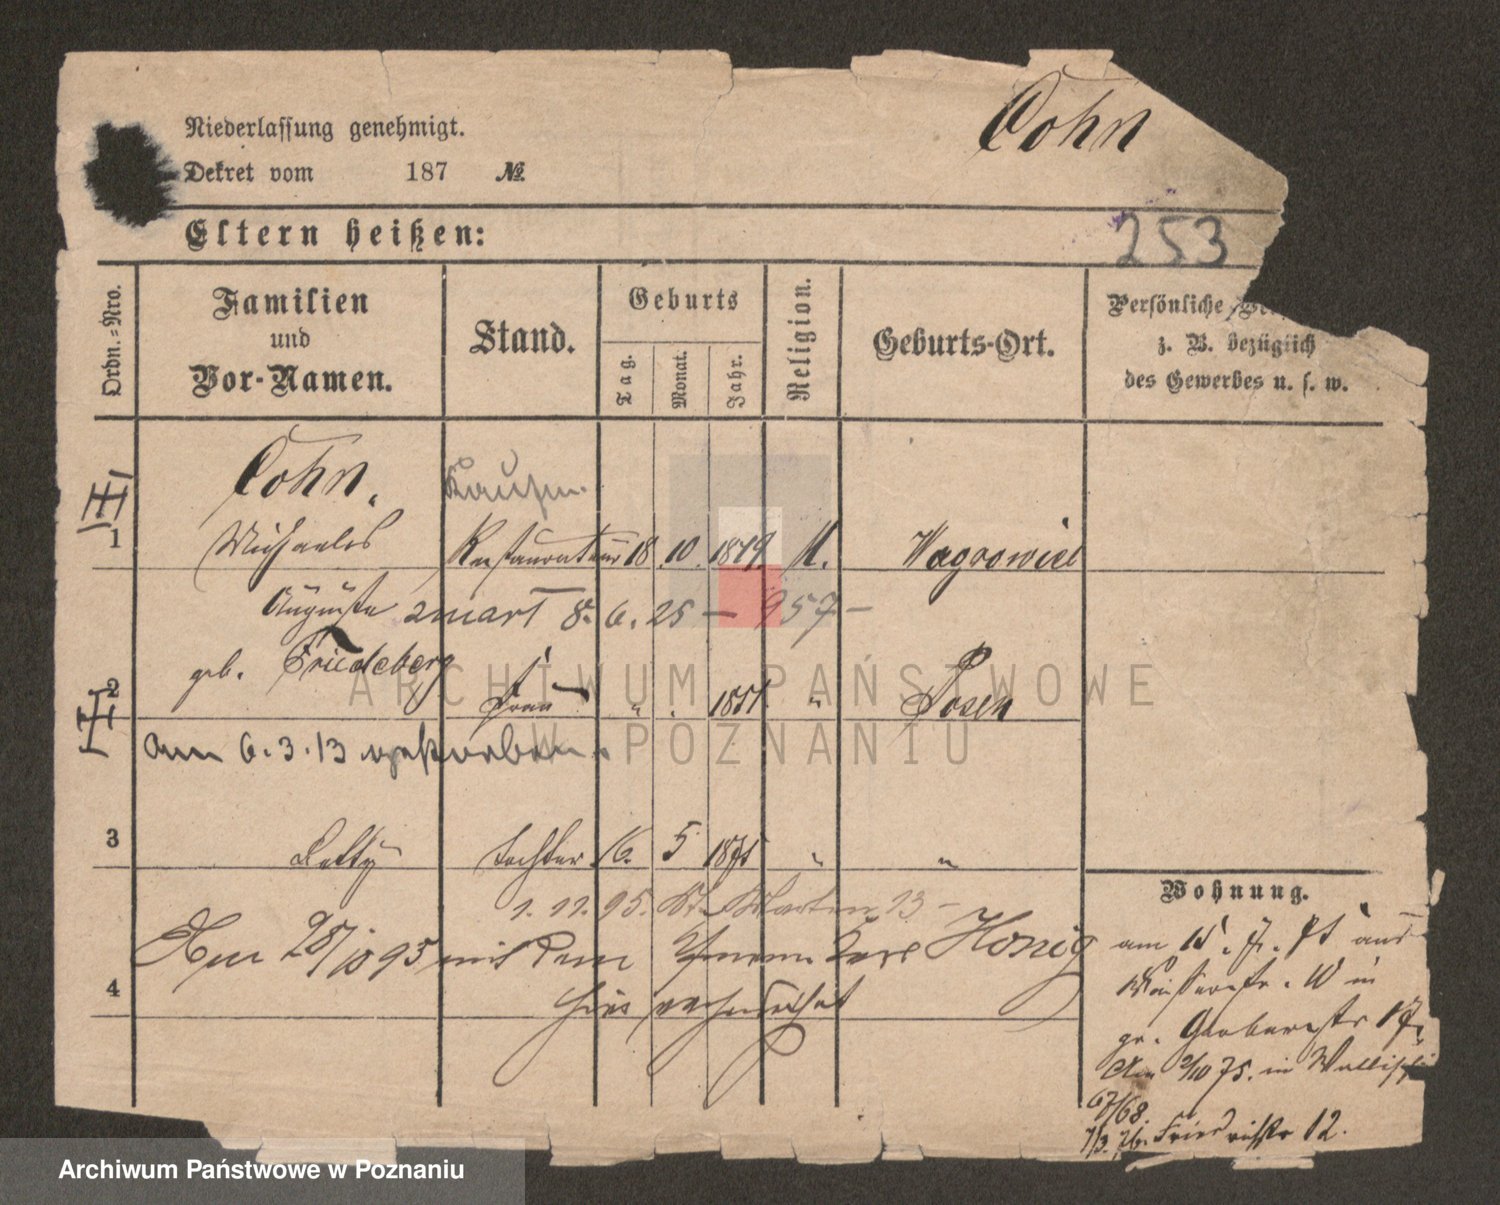 Cohn
Niederlassung genehmigt.
Dekret vom 187 №.
Eltern heißen:
253
Ordn.-Nro.
Familien
und
Vor-Namen.
Stand.
Geburts
Tag.
Monat.
Jahr.
Religion.
Geburts-Ort.
Persönliche
z. B. bezüglich
des Gewerbes u. s. w.
Cohn. Kaufm.
1 Michaelis Restaurateur 18. 10. M. Wagrowiec
Auguste 8. 6. 25 — 957 —
geb. Friedeberg
2 Frau " 1851 " Posen
am 6.3.13 verstorben.
3 Betty Tochter 16. 5 1875 " "
1. 11. 95. St. Martin 13 —
Am 28/10 95 mit dem Honig
4 hier verheirathet
Wohnung.
am 15. 7. aus
in
gr. Gerberstr 17.
Am 2/10 75. in Wallischei
67/68.
7/3. 76. Friedrichstr 12.
ARCHIWUM PAŃSTWOWE
W POZNANIU
Archiwum Państwowe w Poznaniu